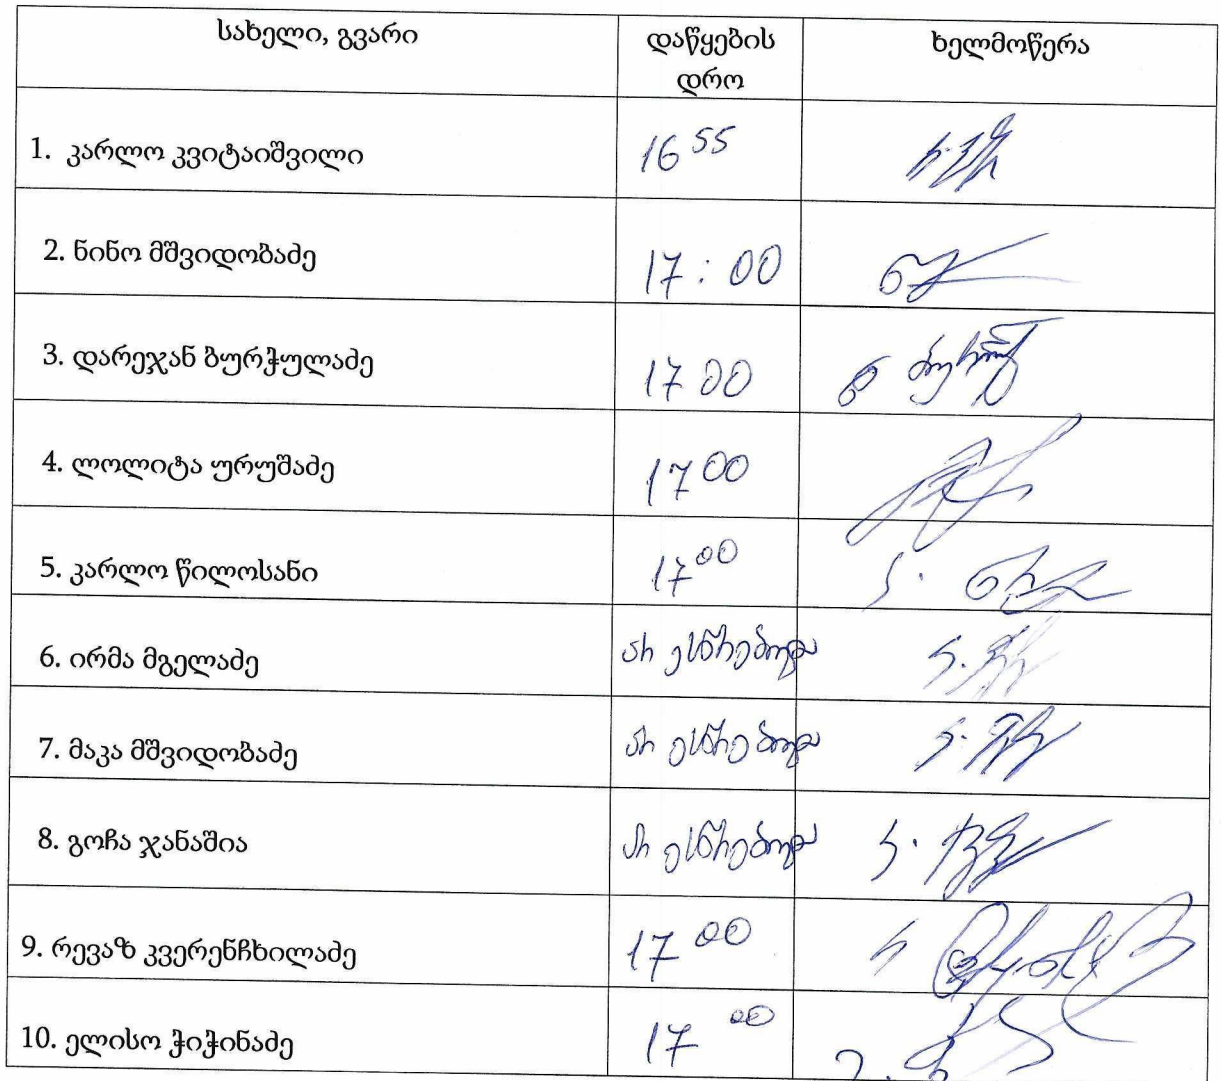 სახელი, გვარი
დაწყების
დრო
ხელმოწერა
1. კარლო კვიტაიშვილი 16 55
2. ნინო მშვიდობაძე 17:00
3. დარეჯან ბურჭულაძე 17 00
4. ლოლიტა ურუშაძე 17 00
5. კარლო წილოსანი 17 00
6. ირმა მგელაძე არ ესწრებოდა
7. მაკა მშვიდობაძე არ ესწრებოდა
8. გოჩა ჯანაშია არ ესწრებოდა
9. რევაზ კვერენჩხილაძე 17 00
10. ელისო ჭიჭინაძე 17 00